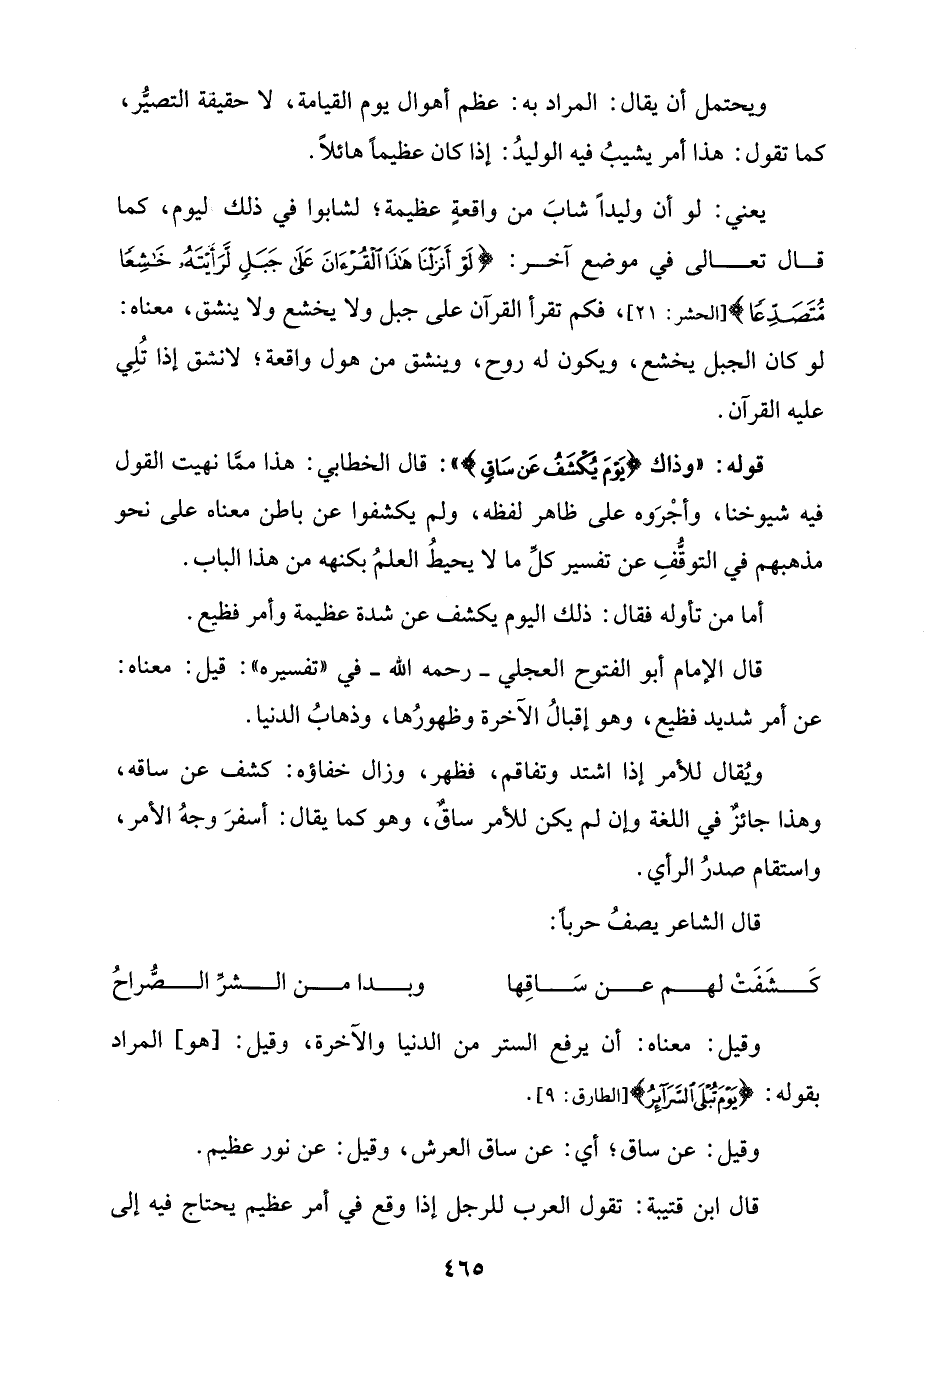 ويحتمل أن يقال: المراد به: عظم أهوال يوم القيامة، لا حقيقة التصيُّر،
كما تقول: هذا أمر يشيبُ فيه الوليدُ: إذا كان عظيماً هائلاً.
يعني: لو أن وليداً شابَ من واقعةٍ عظيمة؛ لشابوا في ذلك ليوم، كما
قــال تعــــالى في موضع آخــر: ﴿لَوْ أَنزَلْنَا هَٰذَا ٱلْقُرْءَانَ عَلَىٰ جَبَلٍ لَّرَأَيْتَهُۥ خَٰشِعًا
مُّتَصَدِّعًا﴾[الحشر: ٢١]، فكم تقرأ القرآن على جبل ولا يخشع ولا ينشق، معناه:
لو كان الجبل يخشع، ويكون له روح، وينشق من هول واقعة؛ لانشق إذا تُلِي
عليه القرآن.
قوله: «وذاك ﴿يَوْمَ يُكْشَفُ عَن سَاقٍ﴾»: قال الخطابي: هذا ممَّا نهيت القول
فيه شيوخنا، وأجْرَوه على ظاهر لفظه، ولم يكشفوا عن باطن معناه على نحو
مذهبهم في التوقُّفِ عن تفسير كلِّ ما لا يحيطُ العلمُ بكنهه من هذا الباب.
أما من تأوله فقال: ذلك اليوم يكشف عن شدة عظيمة وأمر فظيع.
قال الإمام أبو الفتوح العجلي ـ رحمه الله ـ في «تفسيره»: قيل: معناه:
عن أمر شديد فظيع، وهو إقبالُ الآخرة وظهورُها، وذهابُ الدنيا.
ويُقال للأمر إذا اشتد وتفاقم، فظهر، وزال خفاؤه: كشف عن ساقه،
وهذا جائزٌ في اللغة وإن لم يكن للأمر ساقٌ، وهو كما يقال: أسفرَ وجهُ الأمر،
واستقام صدرُ الرأي.
قال الشاعر يصفُ حرباً:
كَـــشَفَتْ لهـــم عـــن سَـــاقِها وبـــدا مـــن الـــشرِّ الـــصُّراحُ
وقيل: معناه: أن يرفع الستر من الدنيا والآخرة، وقيل: [هو] المراد
بقوله: ﴿يَوْمَ تُبْلَى ٱلسَّرَآئِرُ﴾[الطارق: ٩].
وقيل: عن ساق؛ أي: عن ساق العرش، وقيل: عن نور عظيم.
قال ابن قتيبة: تقول العرب للرجل إذا وقع في أمر عظيم يحتاج فيه إلى
٤٦٥